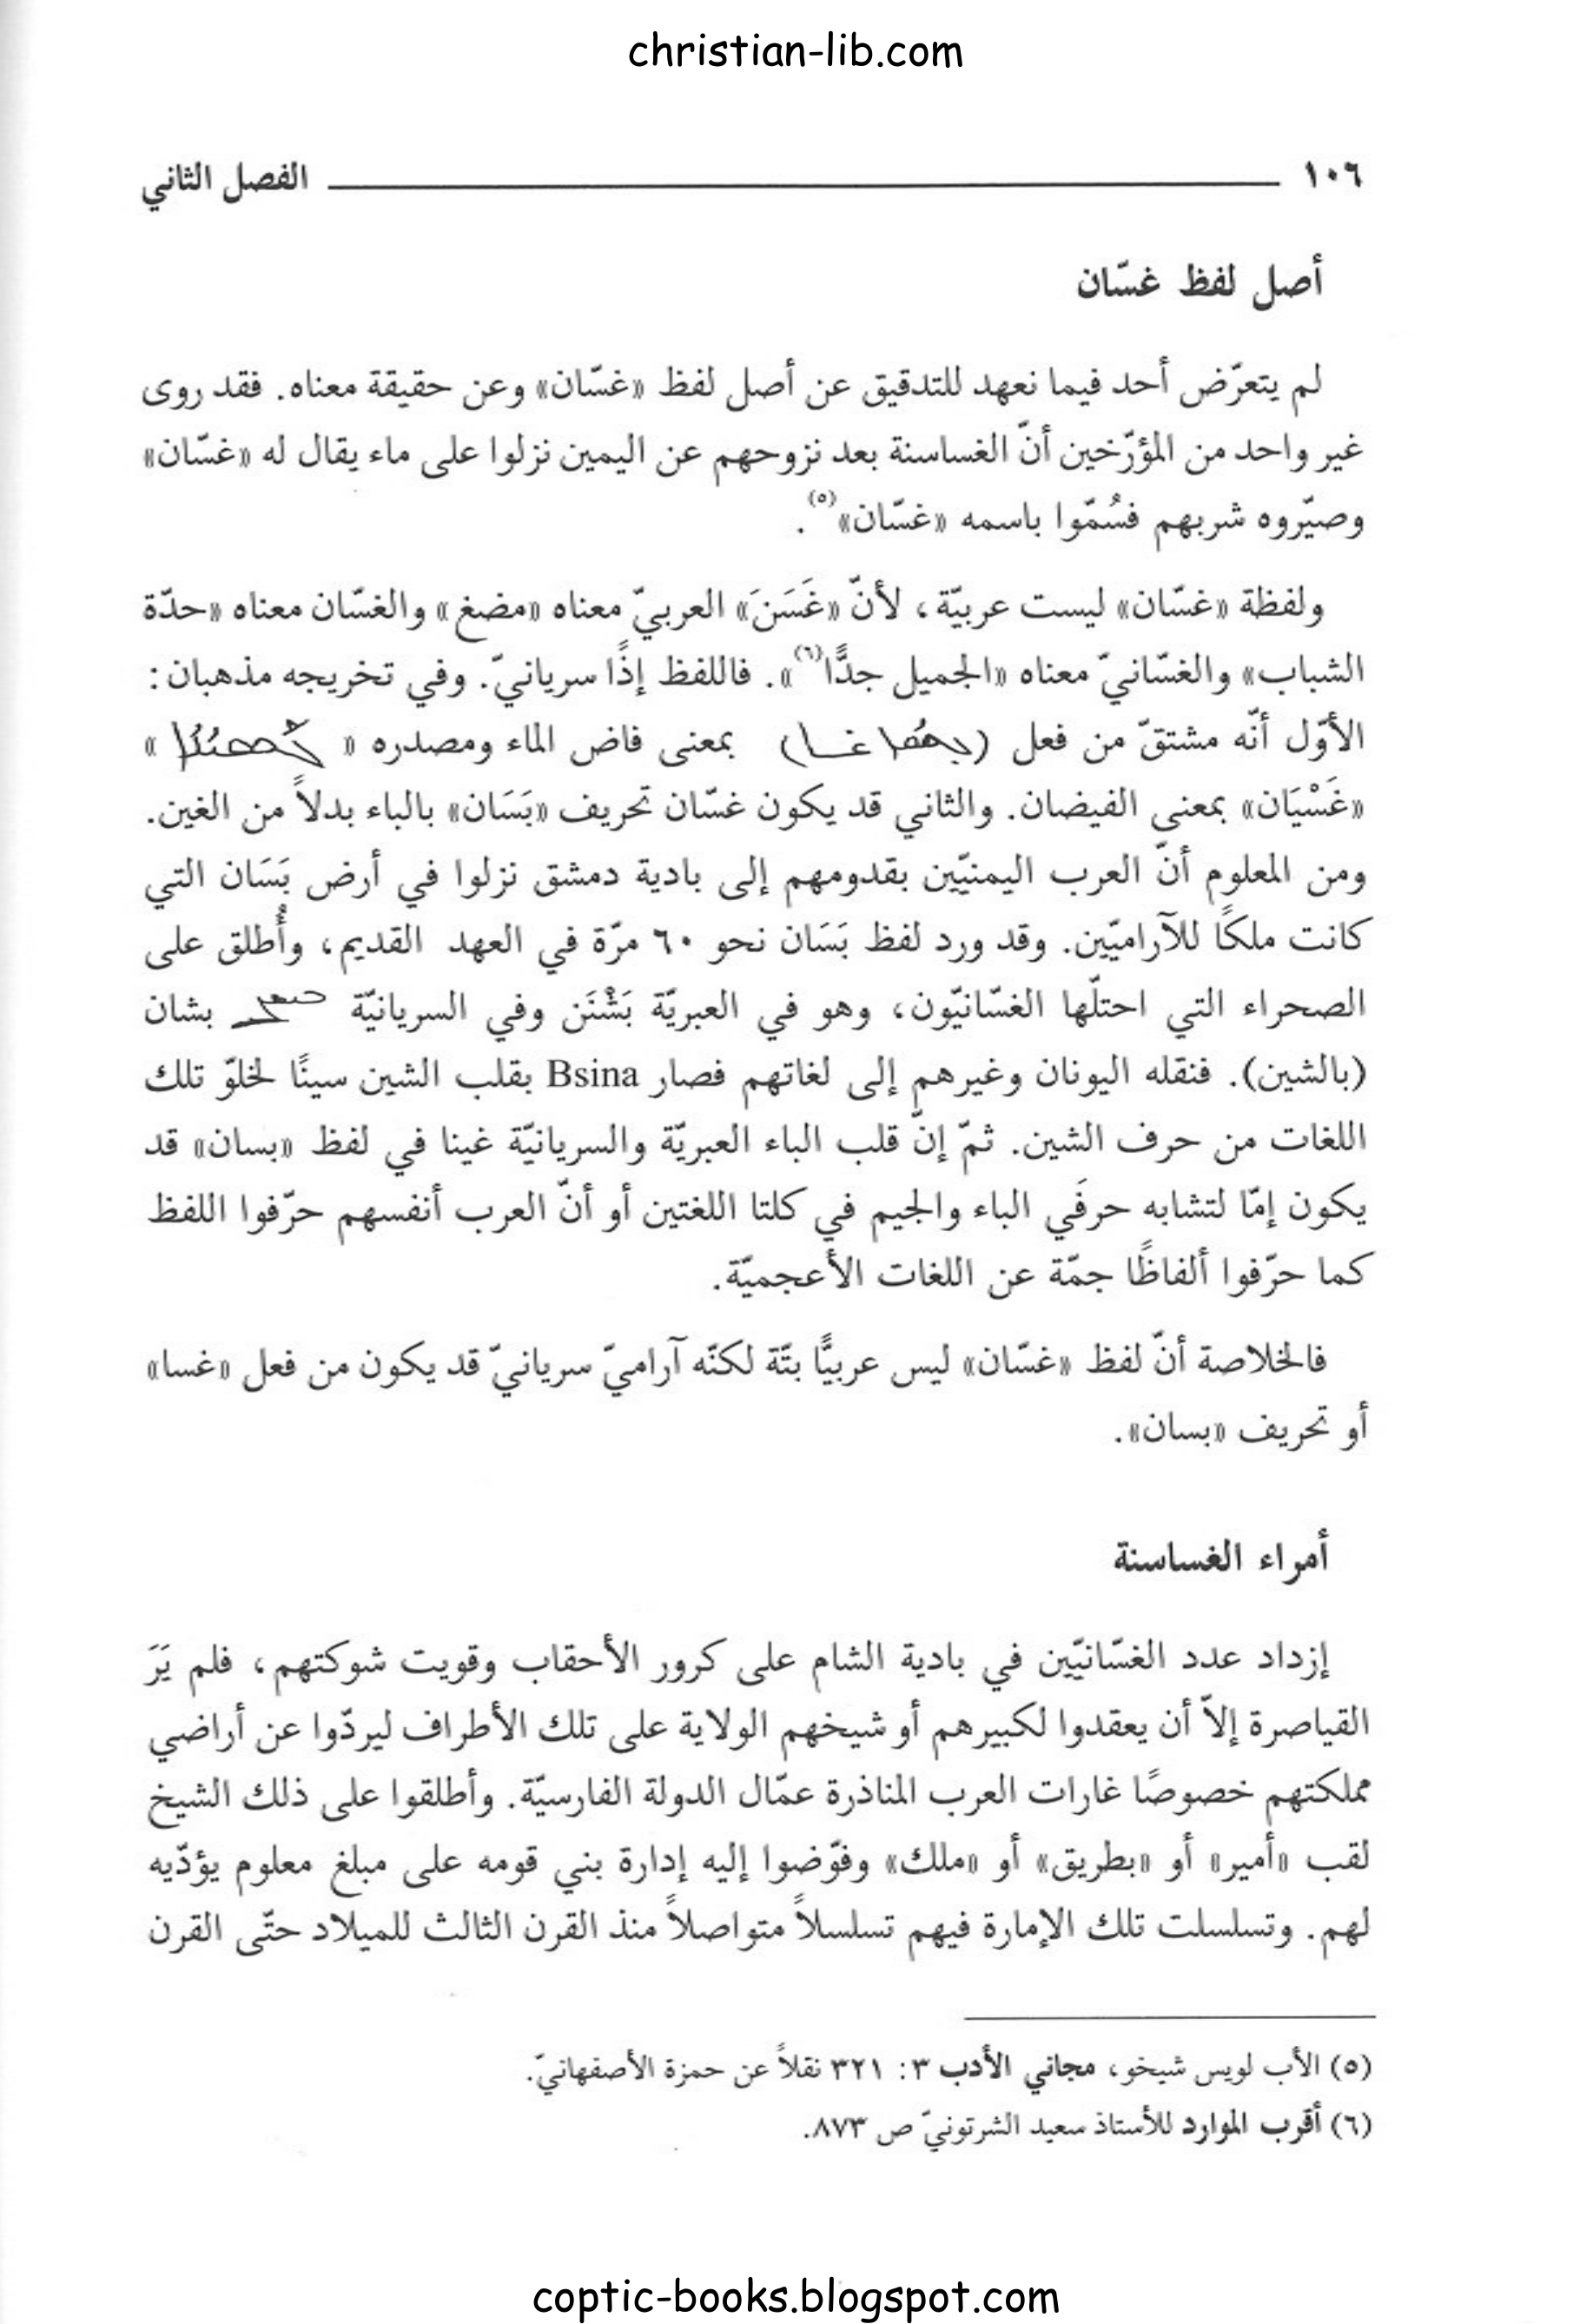 christian-lib.com
١٠٦ الفصل الثاني
أصل لفظ غسّان
لم يتعرّض أحد فيما نعهد للتدقيق عن أصل لفظ «غسّان» وعن حقيقة معناه. فقد روى
غير واحد من المؤرّخين أنّ الغساسنة بعد نزوحهم عن اليمين نزلوا على ماء يقال له «غسّان»
وصيّروه شربهم فسُمّوا باسمه «غسّان»(٥).
ولفظة «غسّان» ليست عربيّة، لأنّ «غَسَنَ» العربيّ معناه «مضغ» والغسّان معناه «حدّة
الشباب» والغسّانيّ معناه «الجميل جدًّا(٦)». فاللفظ إذًا سريانيّ. وفي تخريجه مذهبان:
الأوّل أنّه مشتقّ من فعل ( ) بمعنى فاض الماء ومصدره « »
«غَسْيَان» بمعنى الفيضان. والثاني قد يكون غسّان تحريف «بَسَان» بالباء بدلاً من الغين.
ومن المعلوم أنّ العرب اليمنيّين بقدومهم إلى بادية دمشق نزلوا في أرض بَسَان التي
كانت ملكًا للآراميّين. وقد ورد لفظ بَسَان نحو ٦٠ مرّة في العهد القديم، وأُطلق على
الصحراء التي احتلّها الغسّانيّون، وهو في العبريّة بَشْنَن وفي السريانيّة بشان
(بالشين). فنقله اليونان وغيرهم إلى لغاتهم فصار Bsina بقلب الشين سينًا لخلوّ تلك
اللغات من حرف الشين. ثمّ إنّ قلب الباء العبريّة والسريانيّة غينا في لفظ «بسان» قد
يكون إمّا لتشابه حرفَي الباء والجيم في كلتا اللغتين أو أنّ العرب أنفسهم حرّفوا اللفظ
كما حرّفوا ألفاظًا جمّة عن اللغات الأعجميّة.
فالخلاصة أنّ لفظ «غسّان» ليس عربيًّا بتّة لكنّه آراميّ سريانيّ قد يكون من فعل «غسا»
أو تحريف «بسان».
أمراء الغساسنة
إزداد عدد الغسّانيّين في بادية الشام على كرور الأحقاب وقويت شوكتهم، فلم يَرَ
القياصرة إلاّ أن يعقدوا لكبيرهم أو شيخهم الولاية على تلك الأطراف ليردّوا عن أراضي
مملكتهم خصوصًا غارات العرب المناذرة عمّال الدولة الفارسيّة. وأطلقوا على ذلك الشيخ
لقب «أمير» أو «بطريق» أو «ملك» وفوّضوا إليه إدارة بني قومه على مبلغ معلوم يؤدّيه
لهم. وتسلسلت تلك الإمارة فيهم تسلسلاً متواصلاً منذ القرن الثالث للميلاد حتّى القرن
(٥) الأب لويس شيخو، مجاني الأدب ٣: ٣٢١ نقلاً عن حمزة الأصفهانيّ.
(٦) أقرب الموارد للأستاذ سعيد الشرتونيّ ص ٨٧٣.
coptic-books.blogspot.com